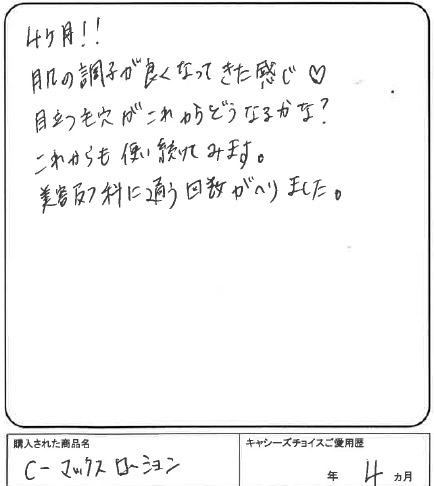 4ヶ月!!
肌の調子が良くなってきた感じ♡
目立つ毛穴がこれからどうなるかな?
これからも使い続けてみます。
美容皮フ科に通う回数がへりました。
購入された商品名
C-マックスローション
キャシーズチョイスご愛用歴
年 4 ヵ月